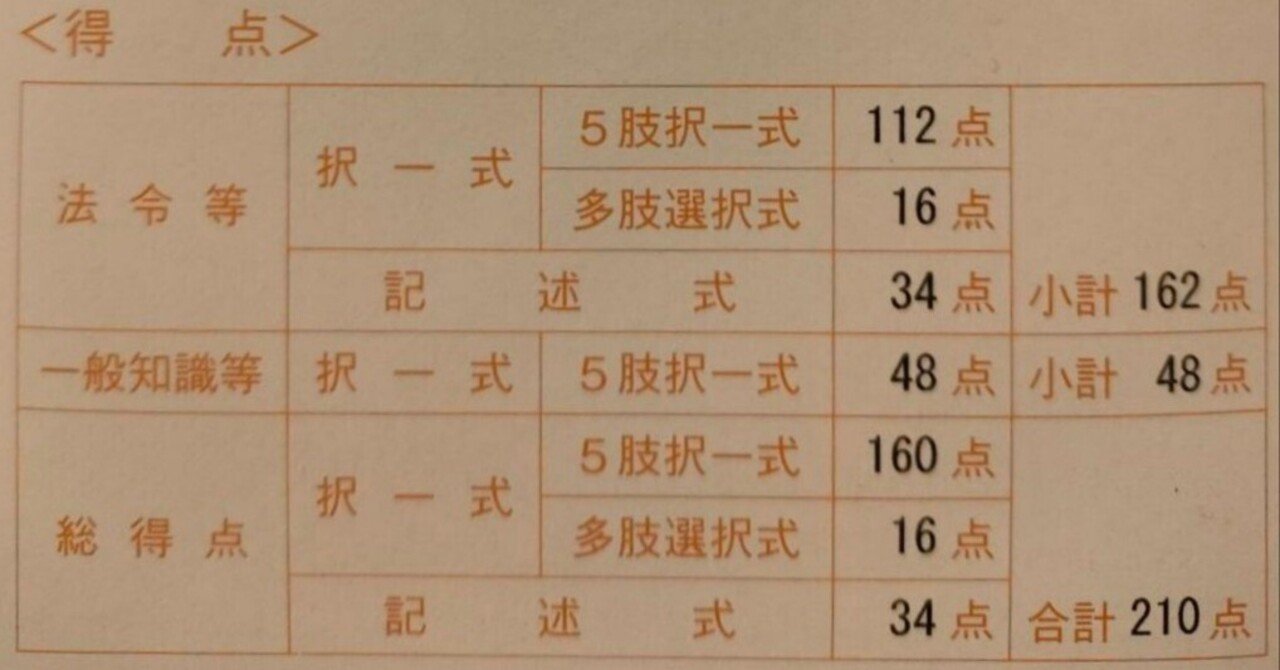 <得 点>
法令等 択一式 5肢択一式 112点
多肢選択式 16点
記述式 34点 小計 162点
一般知識等 択一式 5肢択一式 48点 小計 48点
総得点 択一式 5肢択一式 160点
多肢選択式 16点
記述式 34点 合計 210点